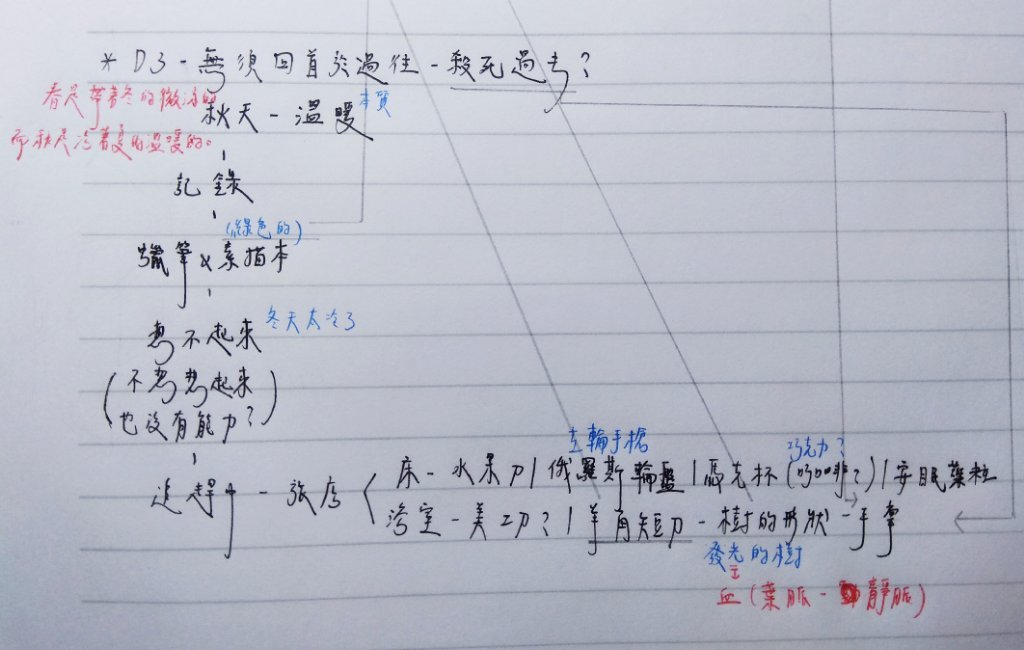 * D3 - 無須回首於過往 - 殺死過去?
春是帶著冬的微涼的
秋天 - 溫暖 本質
而秋是 著夏的溫暖的。
記錄
(綠色的)
蠟筆 & 素描本
想不起來 冬天太冷了
(不想想起來
也沒有能力?)
左輪手槍 巧克力?
床 - 水果刀 | 俄羅斯輪盤 | 馬克杯 (咖啡?) | 安眠藥粒
追趕 - 旅店
浴室 - 美工刀? | 羊角短刀 - 樹的形狀 - 手掌
發光的樹
血 (葉脈 - 靜脈)